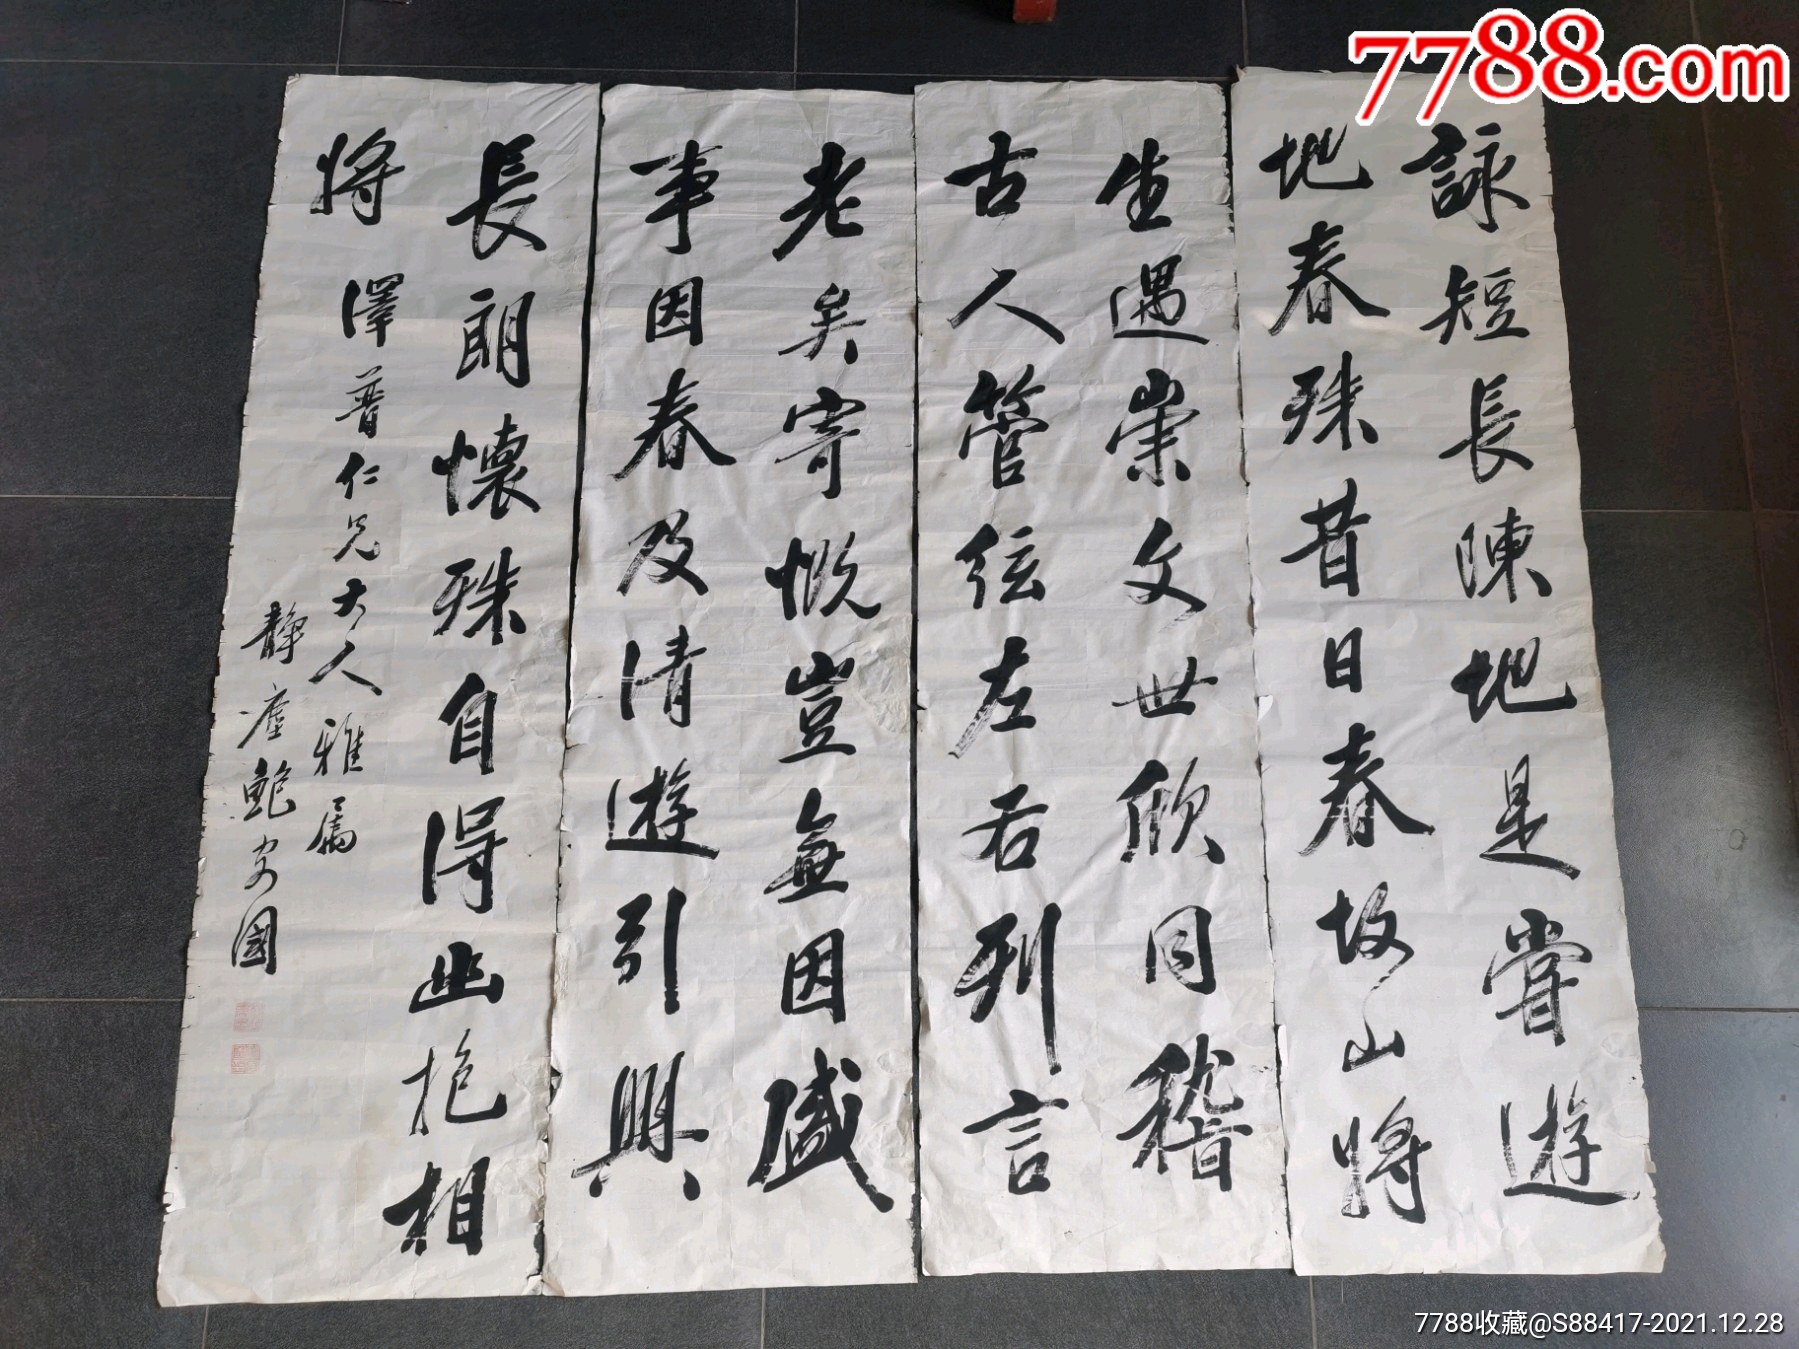 7788.com
詠短長陳地是嘗遊
地春殊昔日春故山將
生遇崇文世欣同稽
古人管弦左右列言
老矣寄慨豈無因感
事因春及清遊引興
長朗懷殊自得幽抱相
將
澤普仁兄大人雅屬
靜鮑安國
7788收藏@S88417-2021.12.28